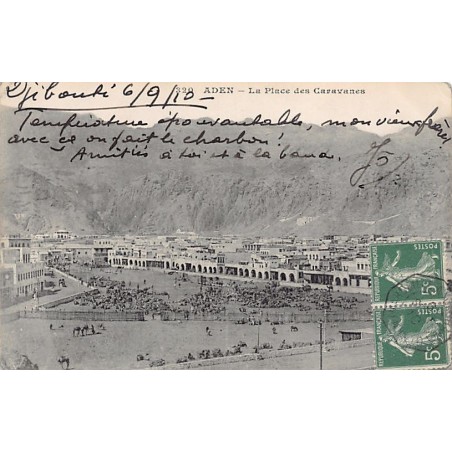 Djibouti 6/9/10 -
320 ADEN - La Place des Caravanes
Température épouvantable, mon vieux frère,
avec ça on fait le charbon!
Amitiés à toi et à la bana.
POSTES
5c
REPUBLIQUE FRANÇAISE
POSTES
5c
REPUBLIQUE FRANÇAISE